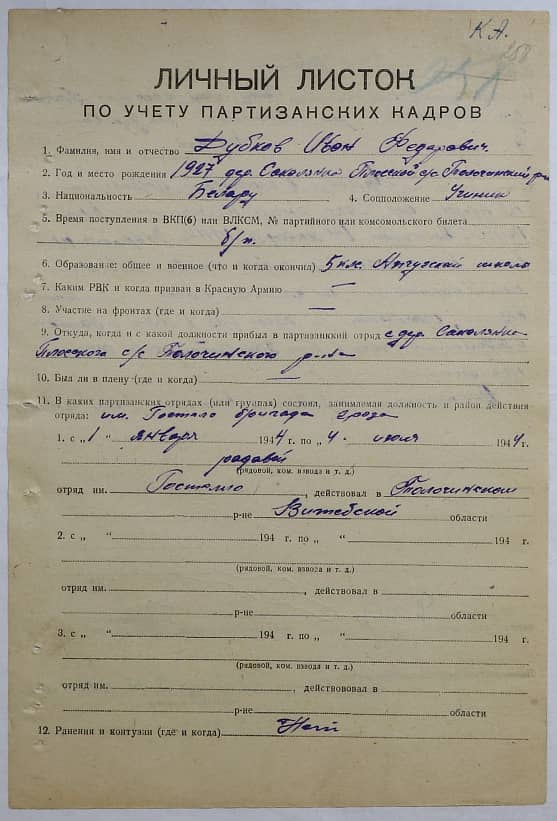 К.А.
258
ЛИЧНЫЙ ЛИСТОК
ПО УЧЕТУ ПАРТИЗАНСКИХ КАДРОВ
1. Фамилия, имя и отчество Дубков Иван Федарович.
2. Год и место рождения 1927 дер. Соколянка Плоский с/с Толочинский р-н
3. Национальность Белару 4. Соцположение Ученик
5. Время поступления в ВКП(б) или ВЛКСМ, № партийного или комсомольского билета
б/п.
6. Образование: общее и военное (что и когда окончил) 5 кл. школа
7. Каким РВК и когда призван в Красную Армию —
8. Участие на фронтах (где и когда) —
9. Откуда, когда и с какой должности прибыл в партизанский отряд с дер. Соколянка
Плоского с/с Толочинского р-на
10. Был ли в плену (где и когда) —
11. В каких партизанских отрядах (или группах) состоял, занимаемая должность и район действия
отряда: им. Гостело бригада гроза
1. с „1 “ января 1944 г. по „4. июля 1944 г.
радавой
(рядовой, ком. взвода и т. д.)
отряд им. Гостелло, действовал в Толочинском
р-не Витебской области
2. с „ “ 194 г. по „ “ 194 г.
(рядовой, ком. взвода и т. д.)
отряд им. , действовал в
р-не области
3. с „ “ 194 г. по „ “ 194 г.
(рядовой, ком. взвода и т. д.)
отряд им. , действовал в
р-не области
12. Ранения и контузии (где и когда) Нет